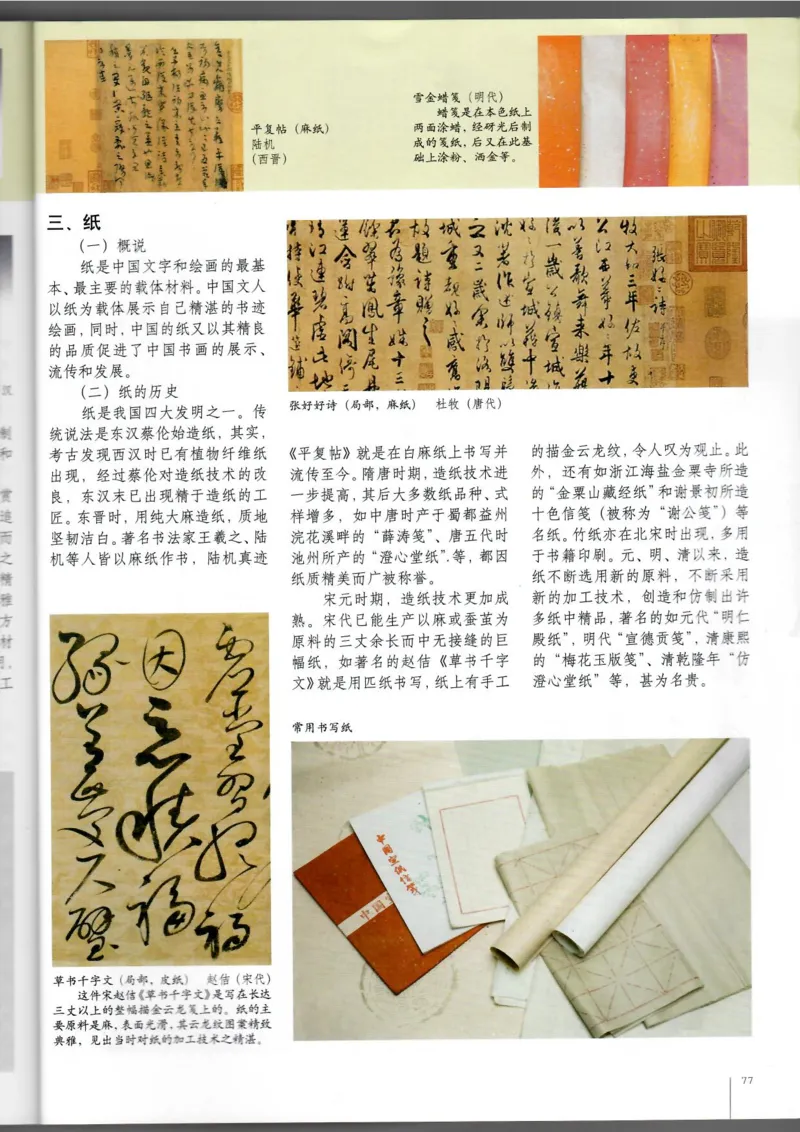 平复帖（麻纸）
陆机
（西晋）
雪金蜡笺（明代）
蜡笺是在本色纸上
两面涂蜡，经砑光后制
成的笺纸，后又在此基
础上涂粉、洒金等。
三、纸
（一）概说
纸是中国文字和绘画的最基
本、最主要的载体材料。中国文人
以纸为载体展示自己精湛的书迹
绘画，同时，中国的纸又以其精良
的品质促进了中国书画的展示、
流传和发展。
（二）纸的历史
纸是我国四大发明之一。传
统说法是东汉蔡伦始造纸，其实，
考古发现西汉时已有植物纤维纸
出现，经过蔡伦对造纸技术的改
良，东汉末已出现精于造纸的工
匠。东晋时，用纯大麻造纸，质地
坚韧洁白。著名书法家王羲之、陆
机等人皆以麻纸作书，陆机真迹
张好好诗（局部，麻纸） 杜牧（唐代）
《平复帖》就是在白麻纸上书写并
流传至今。隋唐时期，造纸技术进
一步提高，其后大多数纸品种、式
样增多，如中唐时产于蜀都益州
浣花溪畔的“薛涛笺”、唐五代时
池州所产的“澄心堂纸”.等，都因
纸质精美而广被称誉。
宋元时期，造纸技术更加成
熟。宋代已能生产以麻或蚕茧为
原料的三丈余长而中无接缝的巨
幅纸，如著名的赵佶《草书千字
文》就是用匹纸书写，纸上有手工
的描金云龙纹，令人叹为观止。此
外，还有如浙江海盐金粟寺所造
的“金粟山藏经纸”和谢景初所造
十色信笺（被称为“谢公笺”）等
名纸。竹纸亦在北宋时出现，多用
于书籍印刷。元、明、清以来，造
纸不断选用新的原料，不断采用
新的加工技术，创造和仿制出许
多纸中精品，著名的如元代“明仁
殿纸”，明代“宣德贡笺”，清康熙
的“梅花玉版笺”、清乾隆年“仿
澄心堂纸”等，甚为名贵。
草书千字文（局部，皮纸） 赵佶（宋代）
这件宋赵佶《草书千字文》是写在长达
三丈以上的整幅描金云龙笺上的。纸的主
要原料是麻，表面光滑，其云龙纹图案精致
典雅，见出当时对纸的加工技术之精湛。
常用书写纸
中国宣纸信笺
中国
77